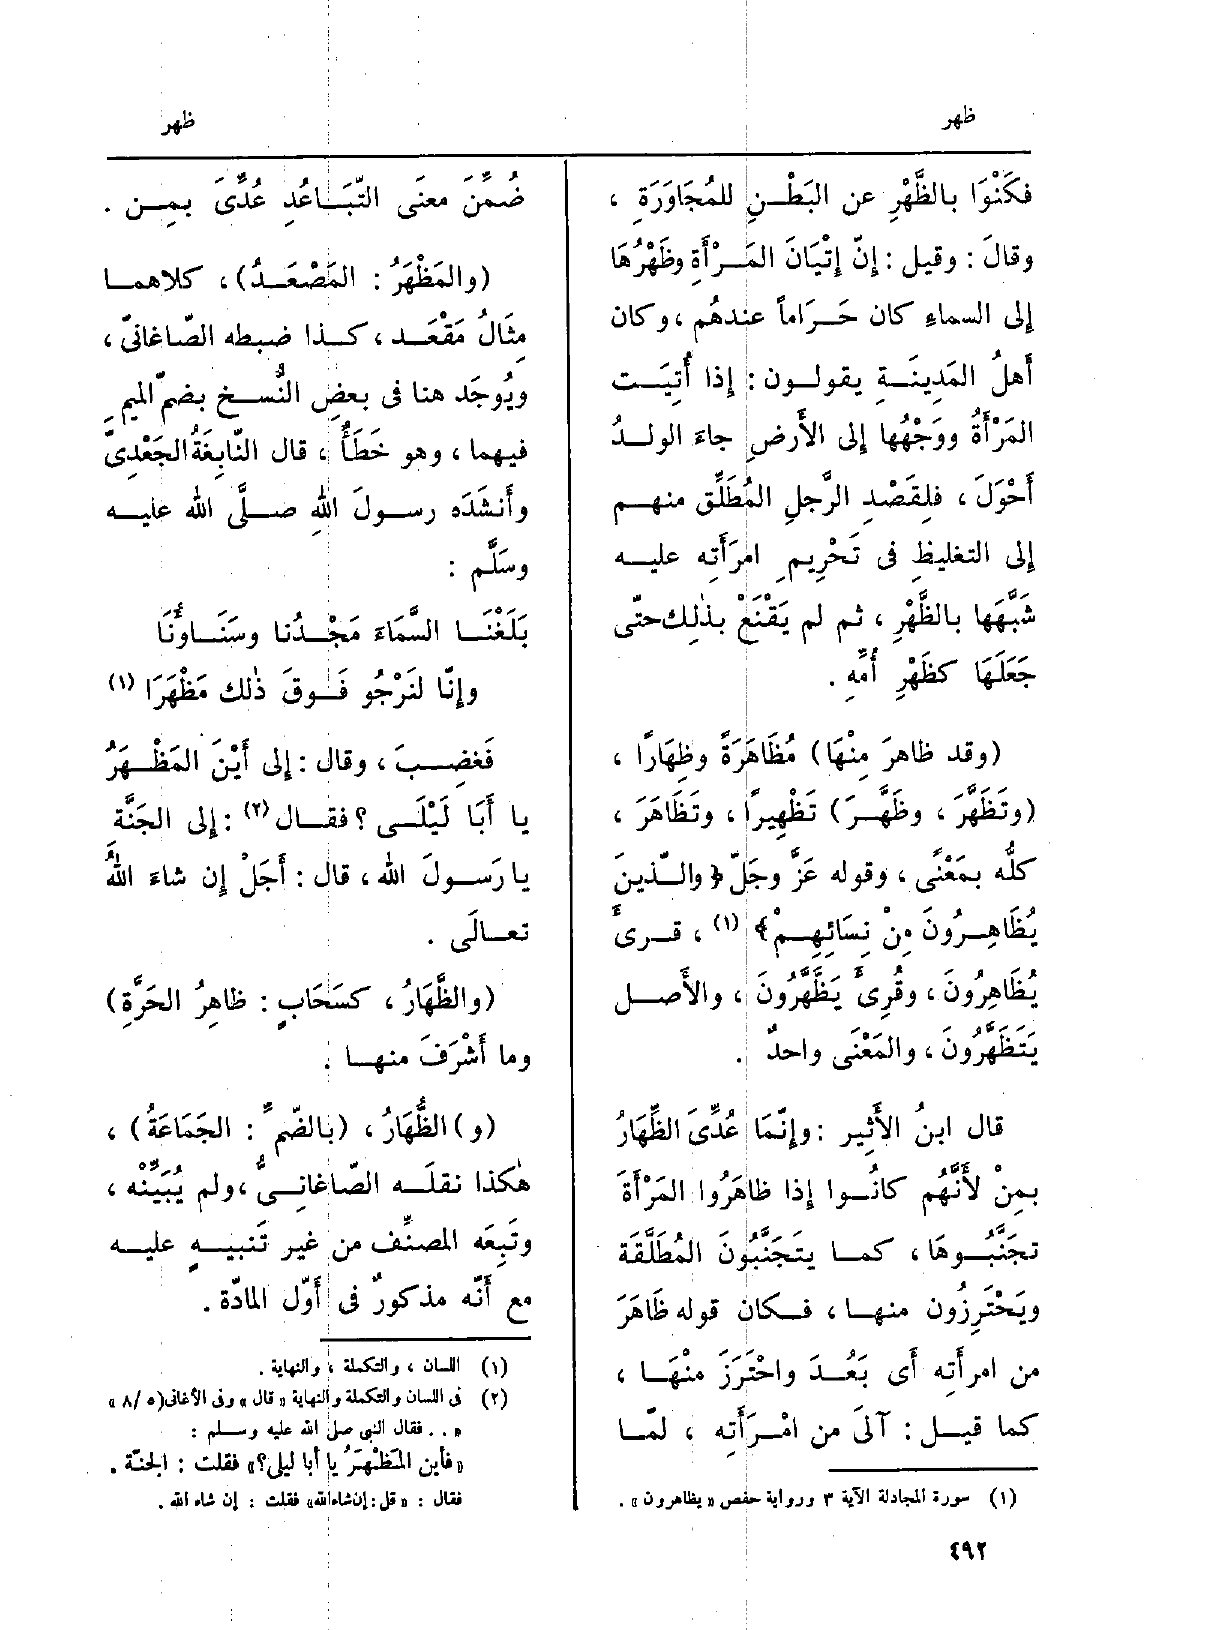 ظهر
ظهر
فكَنَوْا بالظَّهْرِ عن البَطْنِ للمُجَاوَرَةِ ،
وقالَ : وقيل : إنّ إتْيَانَ المَرْأَةِ وظَهْرُهَا
إلى السماءِ كان حَرَاماً عندهُم ، وكان
أَهلُ المَدِينَةِ يقولون : إذا أُتِيَت
المَرْأَةُ ووَجْهُها إلى الأَرضِ جاءَ الولدُ
أَحْوَلَ ، فلِقَصْدِ الرَّجلِ المُطَلِّق منهم
إلى التغليظِ فى تَحْرِيمِ امرَأَتِه عليه
شَبَّهَها بالظَّهْرِ ، ثم لم يَقْنَعْ بذٰلك حتّى
جَعَلَهَا كظَهْرِ أُمِّهِ .
(وقد ظاهرَ مِنْهَا) مُظَاهَرَةً وظِهَارًا ،
(وتَظَهَّرَ ، وظَهَّرَ) تَظْهِيرًا ، وتَظَاهَرَ ،
كلُّه بمَعْنًى ، وقوله عَزَّ وجَلّ ﴿ والَّذينَ
يُظَاهِرُونَ مِنْ نِسَائِهِمْ﴾ (١) ، قرىءَ
يُظَاهِرُونَ ، وقُرِىءَ يَظَّهَّرُونَ ، والأَصل
يَتَظَهَّرُونَ ، والمَعْنَى واحدٌ .
قال ابنُ الأَثِير : وإنَّمَا عُدِّىَ الظِّهَارُ
بمِنْ لأَنَّهُم كانُوا إذا ظاهَرُوا المَرْأَةَ
تجَنَّبُوهَا ، كما يتَجَنَّبُونَ المُطَلَّقَةَ
ويَحْتَرِزُون منها ، فكان قوله ظَاهَرَ
من امرأَتِه أَى بَعُدَ واحْتَرَزَ مِنْهَا ،
كما قيل : آلَى من امْرَأَتِه ، لمّا
(١) سورة المجادلة الآية ٣ ورواية حفص « يظاهرون » .
ضُمِّنَ معنَى التّبَاعُدِ عُدِّىَ بمِن .
(والمَظْهَرُ : المَصْعَدُ) ، كلاهما
مِثَالُ مَقْعَد ، كذا ضبطه الصّاغانىّ ،
ويُوجَد هنا فى بعضِ النُّسخِ بضمّ الميمِ
فيهما ، وهو خَطَأٌ ، قال النّابِغَةُ الجَعْدِىّ
وأَنشَدَه رسولَ اللهِ صلَّى الله عليه
وسَلَّم :
بَلَغْنَا السَّمَاءَ مَجْدُنا وسَنَاؤُنَا
وإنّا لنَرْجُو فَوقَ ذٰلك مَظْهَرَا (١)
فَغضِبَ ، وقال : إلى أَيْنَ المَظْهَرُ
يا أَبَا لَيْلَى ؟ فقال (٢) : إلى الجَنَّةِ
يا رَسولَ الله ، قال : أَجَلْ إن شاءَ اللهُ
تعالَى .
(والظَّهَارُ ، كسَحَابٍ : ظاهِرُ الحَرَّةِ)
وما أَشْرَفَ منها .
(و) الظُّهَارُ ، (بالضّمِّ : الجَمَاعَةُ) ،
هٰكذا نقلَه الصّاغانِىُّ ، ولم يُبَيِّنْه ،
وتَبِعَه المصنِّف من غير تَنبِيهٍ عليه
مع أَنّه مذكورٌ فى أَوّل المادّة .
(١) اللسان ، والتكملة ، والنهاية .
(٢) فى اللسان والتكملة والنهاية « قال » وفى الأغانى (٥ / ٨ »
« . . فقال النبى صلى الله عليه وسلم :
« فأين المَظْهَرُ يا أبا ليلى ؟ » فقلت : الجنّة .
فقال : « قل : إن شاء الله » فقلت : إن شاء الله .
٤٩٢